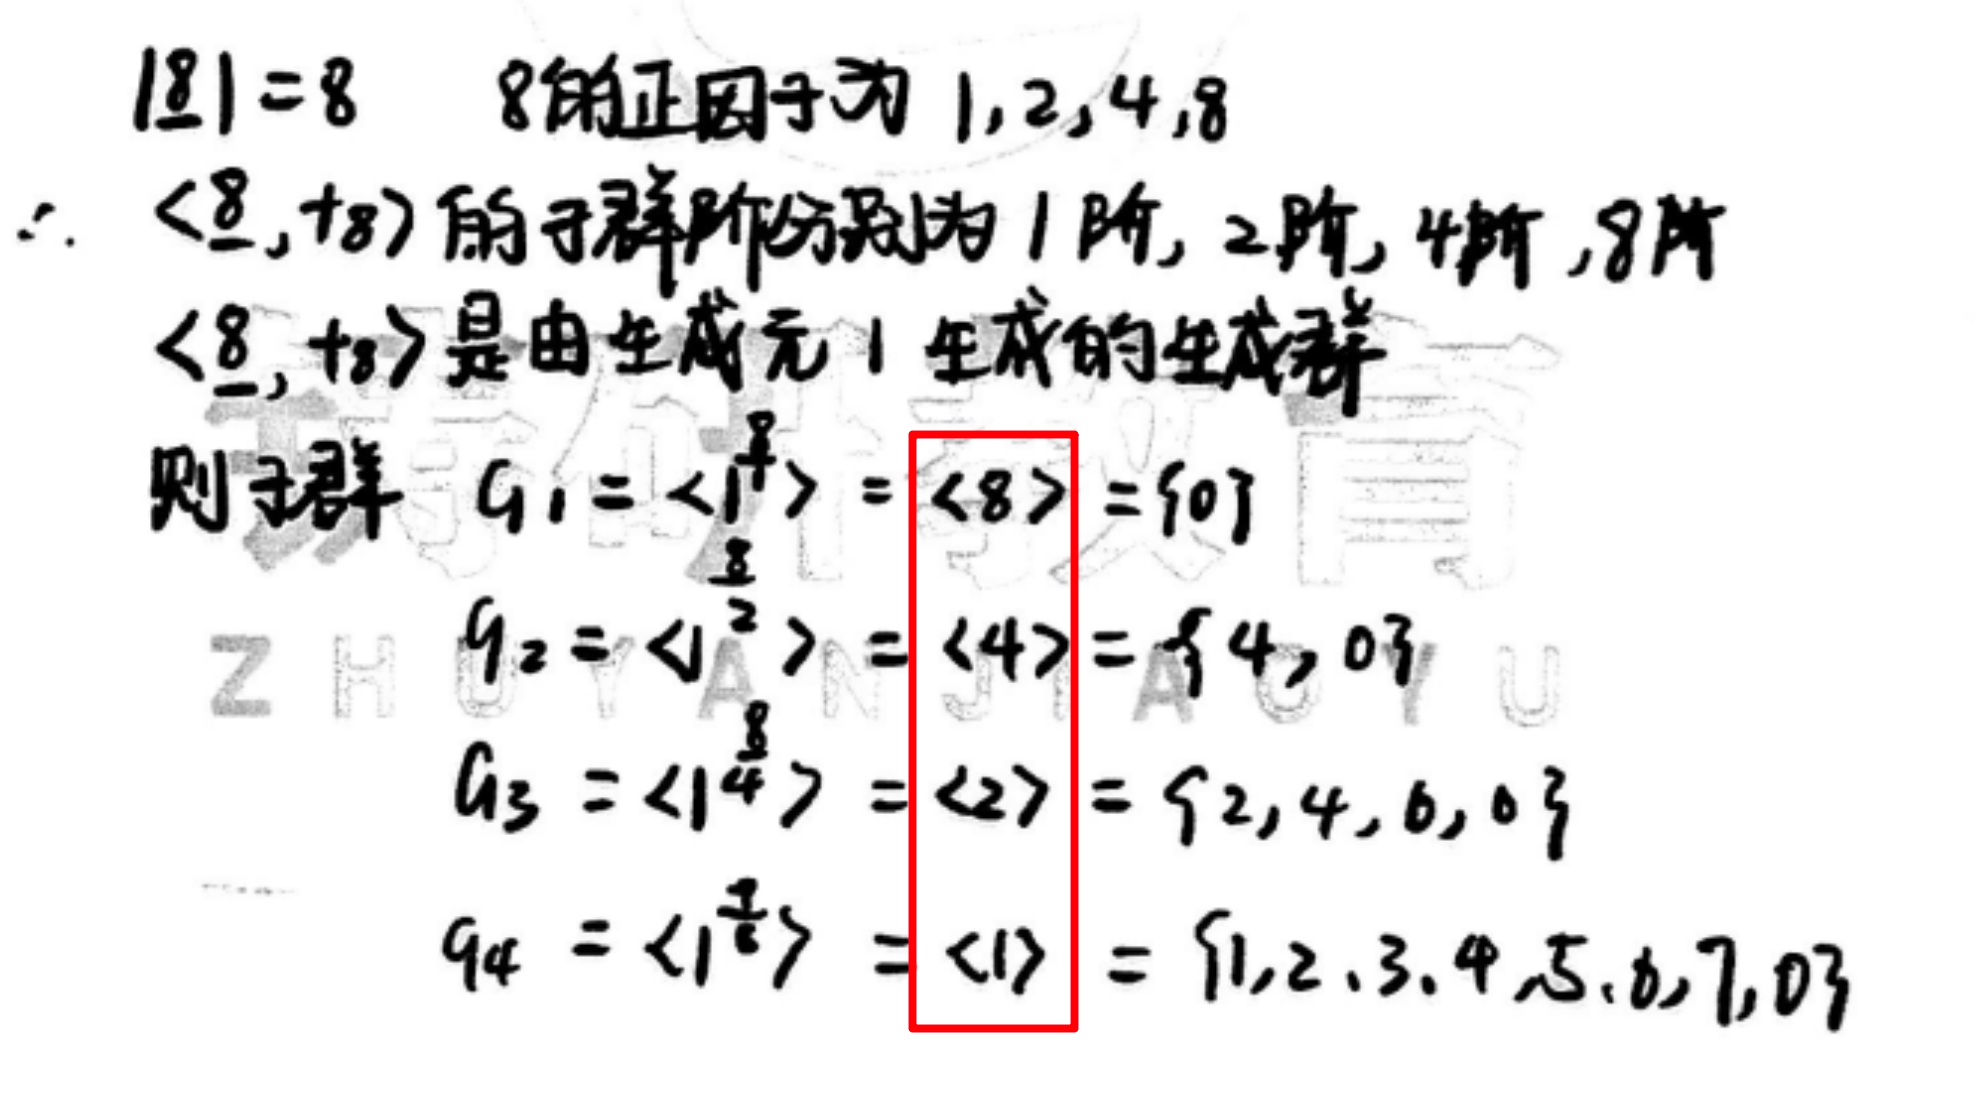 |8| = 8 8的正因子为 1, 2, 4, 8
∴ <8, +8> 的子群阶分别为 1阶, 2阶, 4阶, 8阶
<8, +8> 是由生成元 1 生成的生成群
则子群 G1 = <1^(8/1)> = <8> = {0}
G2 = <1^(8/2)> = <4> = {4, 0}
G3 = <1^(8/4)> = <2> = {2, 4, 6, 0}
G4 = <1> = {1, 2, 3, 4, 5, 6, 7, 0}
教育
ZHUYANJIAOYU